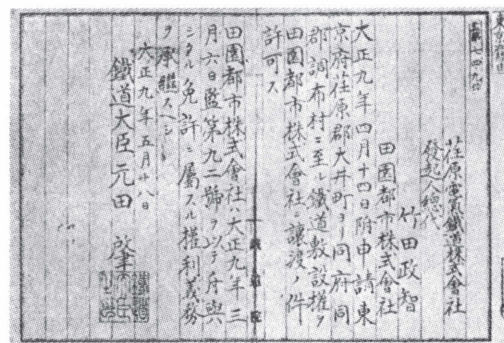 荏原電氣鐵道株式會社
發起人總代
竹田政智
田園都市株式會社
大正九年四月十四日附申請東
京府荏原郡大井町ヨリ同府同
郡調布村ニ至ル鐵道敷設權ヲ
田園都市株式會社ニ讓渡ノ件
許可ス
田園都市株式會社ハ大正九年三
月六日監第九二號ヲ以テ付與
シタル免許ニ屬スル權利義務
ヲ承繼スヘシ
大正九年五月十八日
鐵道大臣元田肇